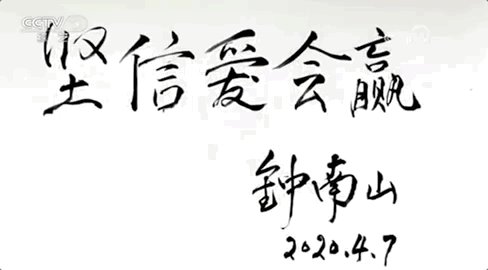 CCTV
坚信爱会赢
钟南山
2020.4.7